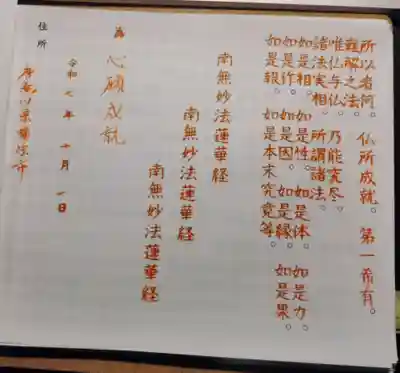 所以者何。仏所成就。第一希有。
難解之法。
唯仏与仏。乃能究尽。
諸法実相。所謂諸法。
如是相。如是性。如是体。
如是力。
如是作。如是因。如是縁。
如是果。
如是報。如是本末究竟等。
南無妙法蓮華経
南無妙法蓮華経
南無妙法蓮華経
為 心願成就
令和七年十月一日
住所